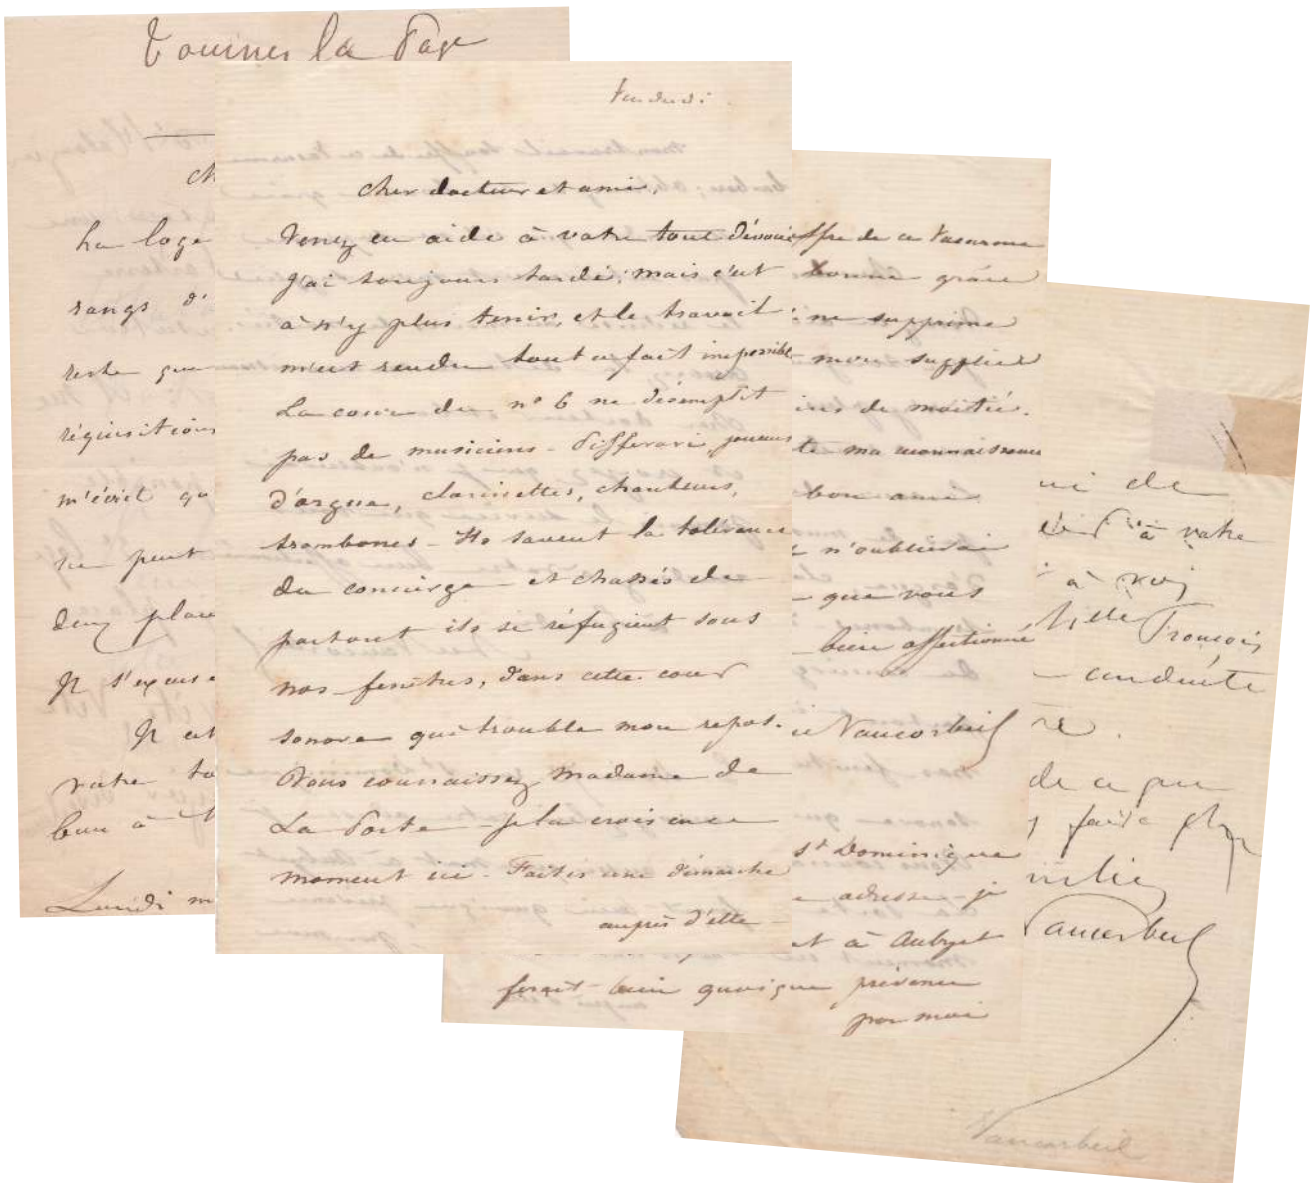 Tournez la Page
La loge
rangs d'
reste que
réquisitions
m'écrit qu
ne peut
deux place
Il s'excuse
Il est
votre to
bien à
Lundi m
Vendredi
Cher docteur et ami,
Venez en aide à votre tout dévoué
J'ai toujours tardé; mais c'est
à n'y plus tenir, et le travail
m'est rendu tout à fait impossible
La cour du nº 6 ne désemplit
pas de musiciens - Pifferari, joueurs
d'orgue, clarinettes, chanteurs,
trombones - Ils savent la tolérance
du concierge et chassés de
partout ils se réfugient sous
nos fenêtres, dans cette cour
sonore qui trouble mon repos.
Vous connaissez madame de
La Porte - plus croisence
moment ici - Faites une démarche
auprès d'elle -
ffre de ce vacarme
bonne grâce
ne supprime
mon supplice
ins de moitié.
te ma reconnaissance
bon ami
n'oublierai
que vous
bien affectionné
Vaucorbeil
St Dominique
adresse - je
et à Aubryet
serait bien quoique prévenu
par moi
ui de
à votre
à
Mlle François
conduite
re.
de ce que
faire
Vaucorbeil
Vaucorbeil